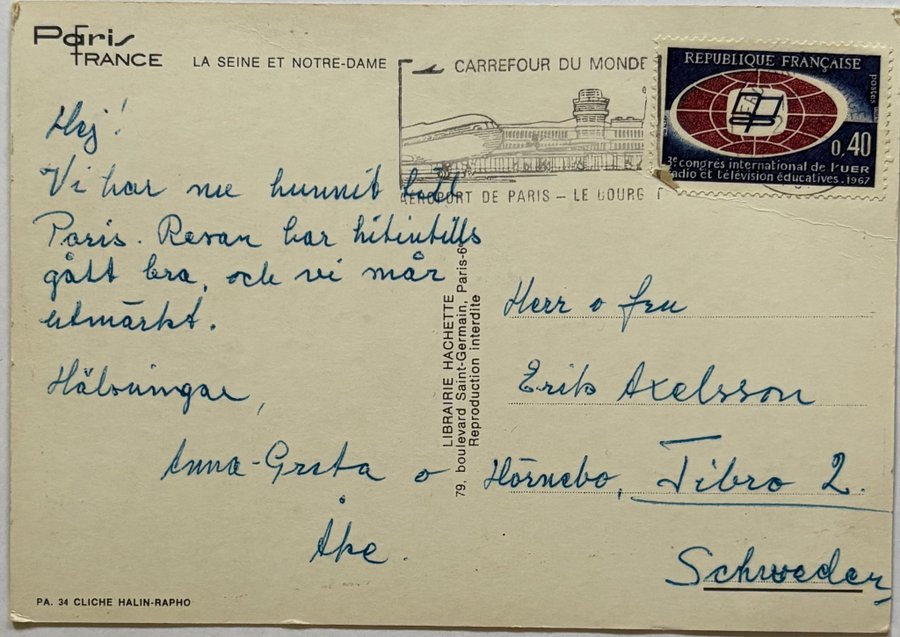 Paris
FRANCE
LA SEINE ET NOTRE-DAME
CARREFOUR DU MONDE
AEROPORT DE PARIS – LE BOURG
REPUBLIQUE FRANÇAISE
postes
0,40
3e congrès international de l'UER
radio et télévision éducatives. 1967
Hej!
Vi har nu hunnit till
Paris. Resan har hitintills
gått bra, och vi mår
utmärkt.
Hälsningar,
Anna-Greta o
Åke.
LIBRAIRIE HACHETTE
79, boulevard Saint-Germain, Paris-6e
Reproduction interdite
Herr o fru
Erik Axelsson
Hörnebo, Tibro 2.
Schweden
PA. 34 CLICHE HALIN-RAPHO